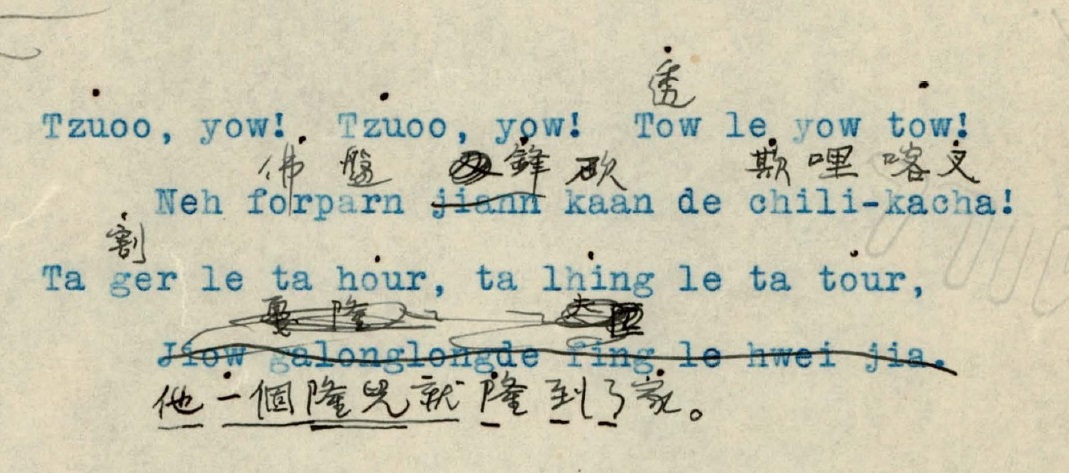 透
Tzuoo, yow! Tzuoo, yow! Tow le yow tow!
佛盤 鋒砍 欺哩喀叉
Neh forparn jiann kaan de chili-kacha!
割
Ta ger le ta hour, ta lhing le ta tour,
隆
Jiow galonglongde fing le hwei jia.
他一個隆兜就隆到了家。